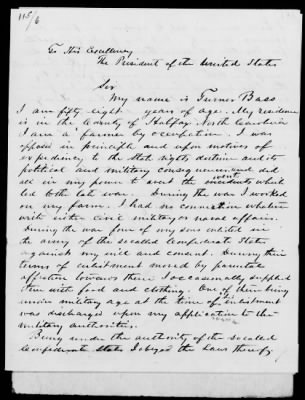 115/6
To His Excellency
The President of the United States
Sir
My name is Turner Bass
I am fifty eight years of age. My residence
is in the County of Halifax North Carolina
I am a farmer by occupation. I was
opposed in principle and upon motives of
expediency to the State rights doctrine and its
political and military consequences, and did
all in my power to avert the events which
led to the late war. During the war I worked
on my farm. I had no connexion whatever
with either civil military or naval affairs.
During the war four of my sons enlisted in
the army of the socalled Confederate States
against my will and consent. During their
terms of enlistment moved by parental
affection towards them I occasionally supplied
them with food and clothing. One of them being
under military age at the time of his enlistment
was discharged upon my application to the
military authorities.
Being under the authority of the socalled
Confederate States I obeyed the Laws thereof